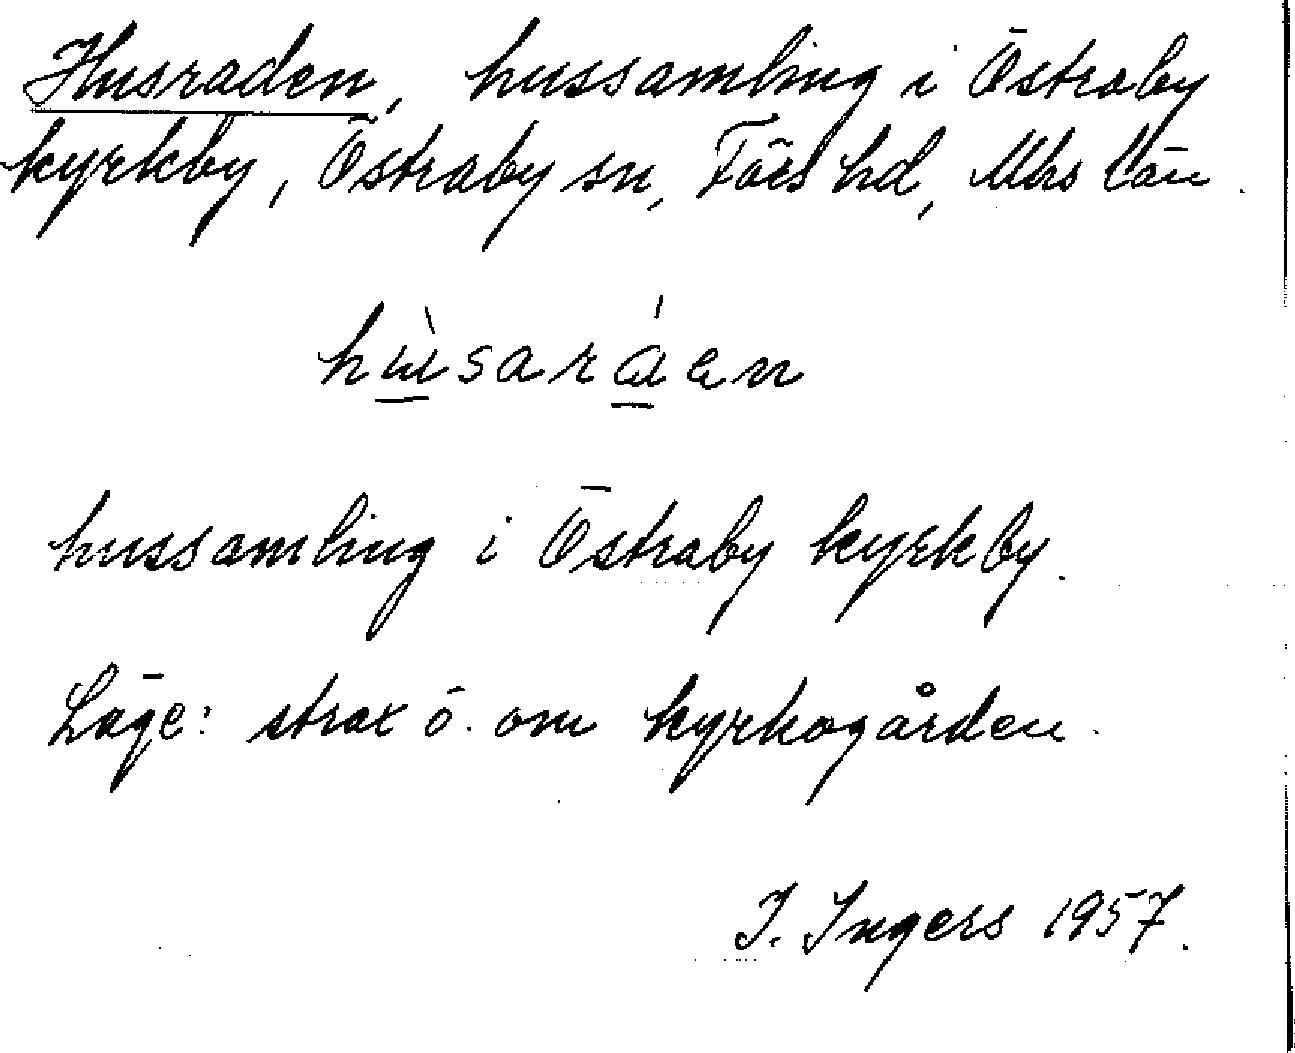 Husraden, hussamling i Östraby
kyrkby, Östraby sn, Färs hd, Mhs län.
hùsaráen
hussamling i Östraby kyrkby.
Läge: strax ö. om kyrkogården.
I. Ingers 1957.